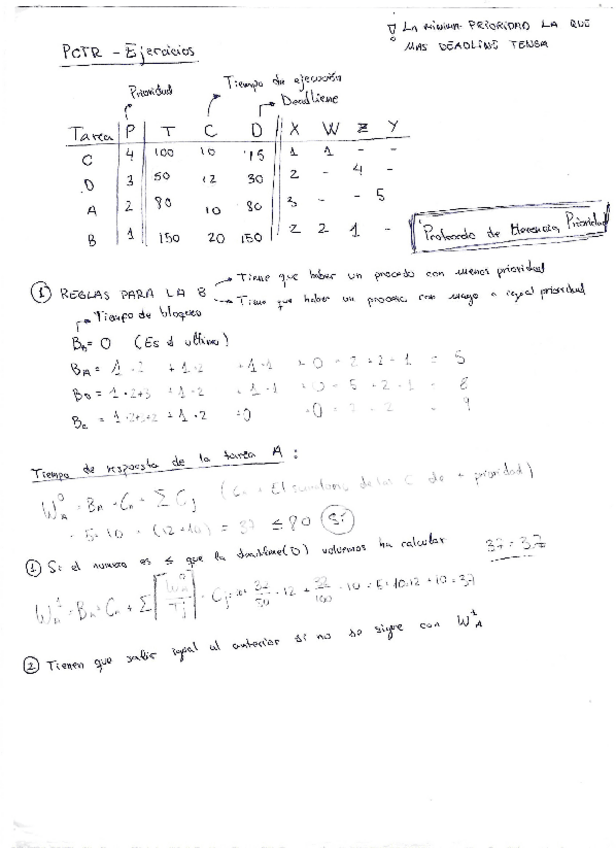 ! LA MINIMA PRIORIDAD LA QUE
MAS DEADLINE TENGA
PCTR - Ejercicios
Prioridad
Tiempo de ejecución
Deadliene
Tarea P T C D X W Z Y
C 4 100 10 15 1 1 - -
D 3 50 12 30 2 - 4 -
A 2 80 10 80 3 - - 5
B 1 150 20 150 2 2 1 -
Protocolo de Herencia Prioridad
① REGLAS PARA LA B
Tiene que haber un proceso con menos prioridad
Tiene que haber un proceso con mayor o igual prioridad
Tiempo de bloqueo
= 0 (Es el ultimo)
= 1·2 + 1·2 + 1·1 + 0 = 2+2+1 = 5
= 1·2+3 + 1·2 + 1·1 + 0 = 5+2+1 = 8
= 1·2+3+2 + 1·2 + 0 + 0 = 9
Tiempo de respuesta de la tarea A:
= 5 + 10 + (12+10) = 37 ≤ 80 Sí
① Si el numero es ≤ que la deadline (D) volvemos ha calcular
37 = 37
② Tienen que salir igual al anterior si no se sigue con